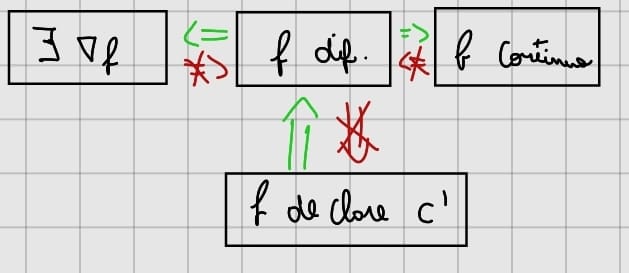 ∃ ∇f <= f dif. => f Continua
≠> <≠
⇑ ⇓̸
f de clase C¹